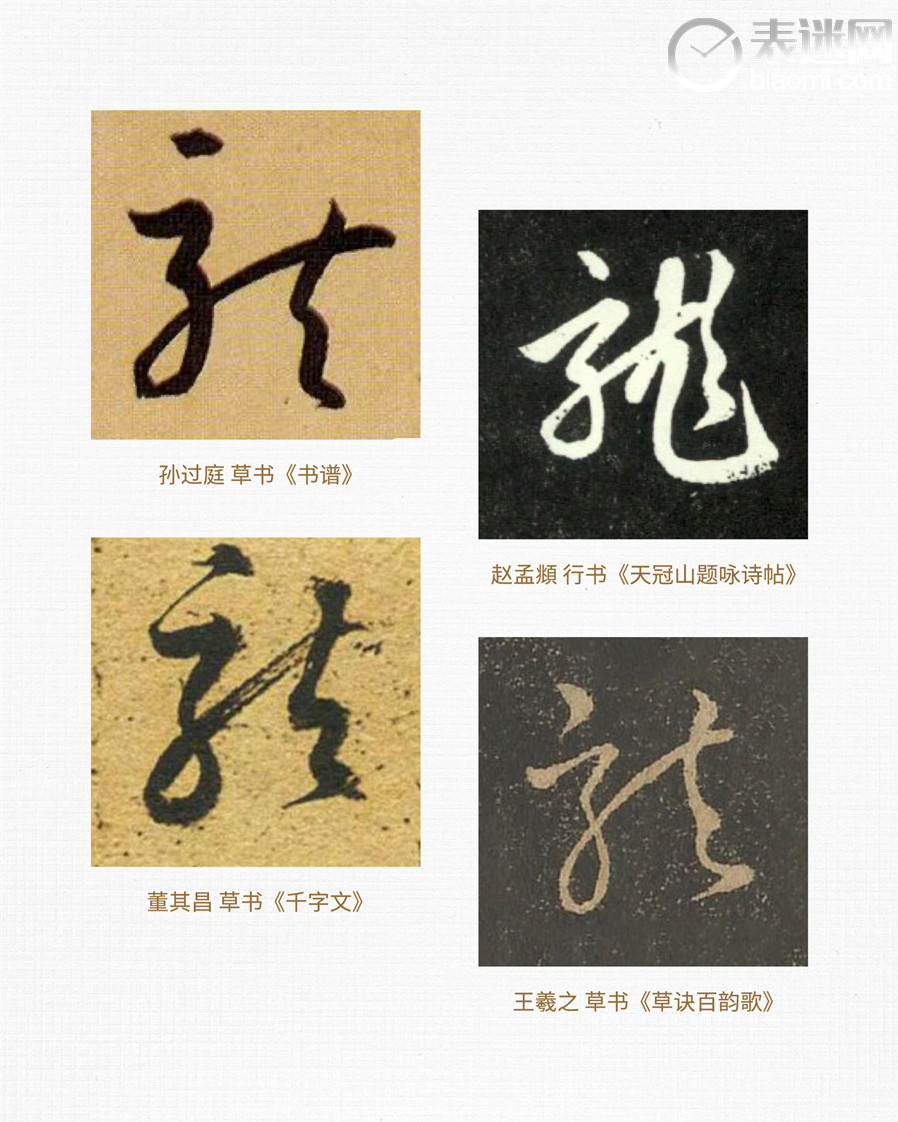 表迷网
biaomi.com
龙
孙过庭 草书《书谱》
龍
赵孟頫 行书《天冠山题咏诗帖》
龙
董其昌 草书《千字文》
龙
王羲之 草书《草诀百韵歌》